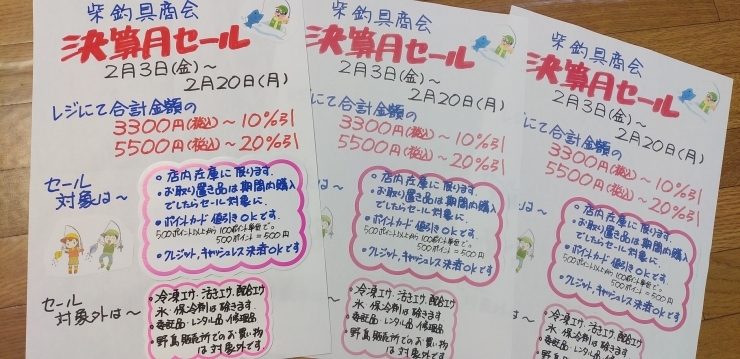 柴釣具商会
決算月セール
2月3日(金)~
2月20日(月)
レジにて合計金額の
3300円(税込)~10%引
5500円(税込)~20%引
セール
対象は~
・店内在庫に限ります。
・お取り置き品は期間内購入
でしたらセール対象に。
・ポイントカード値引きOKです。
500ポイント以上から100ポイント単位で。
500ポイント=500円
・クレジット、キャッシュレス決済OKです
セール
対象外は~
・冷凍エサ、活きエサ、配合エサ
氷・保冷剤は除きます
・委託品・レンタル品・修理品
・野島販売所でのお買い物
は対象外です。
柴釣具商会
決算月セール
2月3日(金)~
2月20日(月)
にて合計金額の
3300円(税込)~10%引
5500円(税込)~20%引
・店内在庫に限ります。
・お取り置き品は期間内購入
でしたらセール対象に。
・ポイントカード値引きOKです。
500ポイント以上から100ポイント単位で。
500ポイント=500円
・クレジット、キャッシュレス決済OKです
・冷凍エサ、活きエサ、配合エサ
氷・保冷剤は除きます
・委託品・レンタル品・修理品
・野島販売所でのお買い物
は対象外です。
柴釣具商会
決算月セール
2月3日(金)~
2月20日(月)
にて合計金額の
3300円(税込)~10%引
5500円(税込)~20%引
は~
・店内在庫に限ります。
・お取り置き品は期間内購入
でしたらセール対象に。
・ポイントカード値引きOKです。
500ポイント以上から100ポイント単位で。
500ポイント=500円
・クレジット、キャッシュレス決済OKです
・冷凍エサ、活きエサ、配合エサ
氷・保冷剤は除きます
・委託品・レンタル品・修理品
・野島販売所でのお買い物